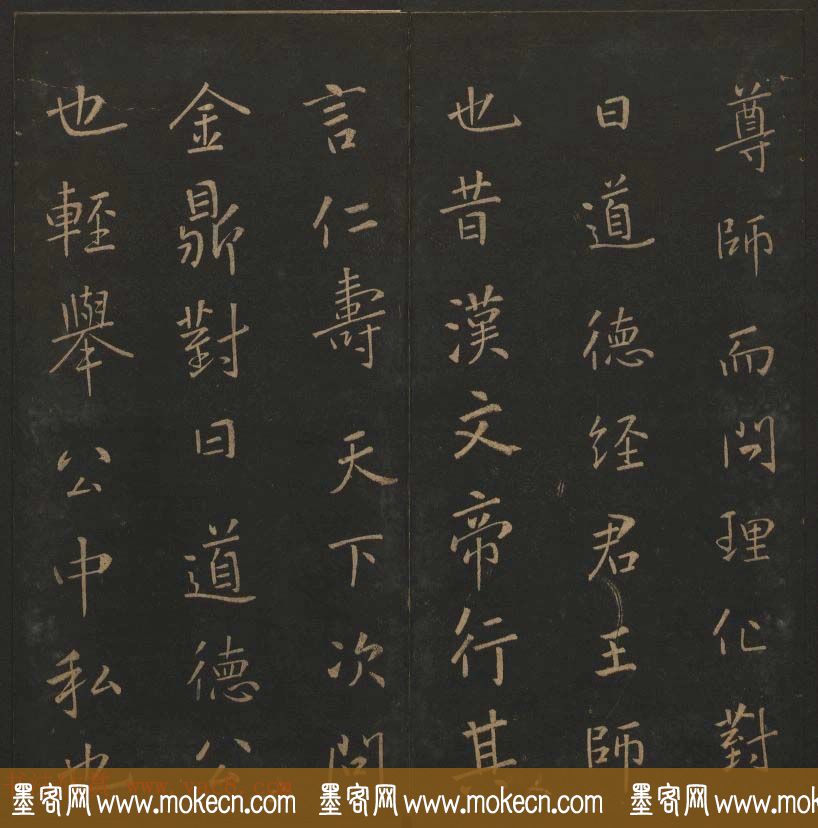 尊師而問理化對
曰道德經君王師
也昔漢文帝行其
言仁壽天下次問
金鼎對曰道德公
也輕舉公中私也
墨客网 www.mokecn.com 墨客网 www.mokecn.com 墨客网 www.mokecn.com